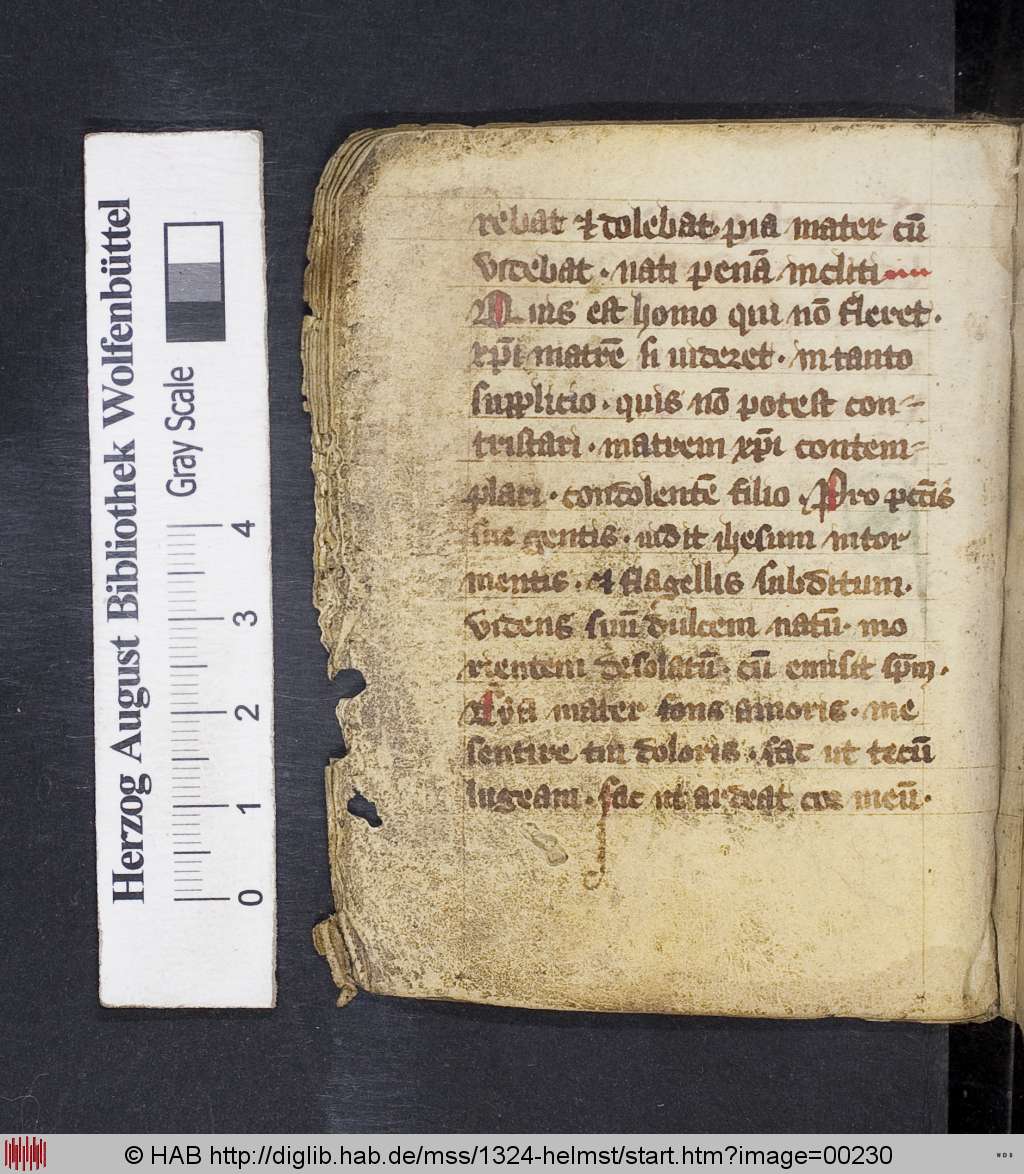 Herzog August Bibliothek Wolfenbüttel
Gray Scale
0 1 2 3 4
rebat et dolebat · pia mater cū
videbat · nati penā incliti
Quis est homo qui nō fleret ·
xp̄i matrē si uideret · in tanto
supplicio · quis nō potest con-
tristari · matrem xp̄i contem-
plari · condolentē filio · Pro pctīs
sue gentis · uidit ihesum in tor
mentis · et flagellis subditum ·
videns suū dulcem natū · mo
rientem desolatū · cū emisit sp̄m ·
Eya mater fons amoris · me
sentire uim doloris · fac ut tecū
lugeam · fac ut ardeat cor meū ·
© HAB http://diglib.hab.de/mss/1324-helmst/start.htm?image=00230